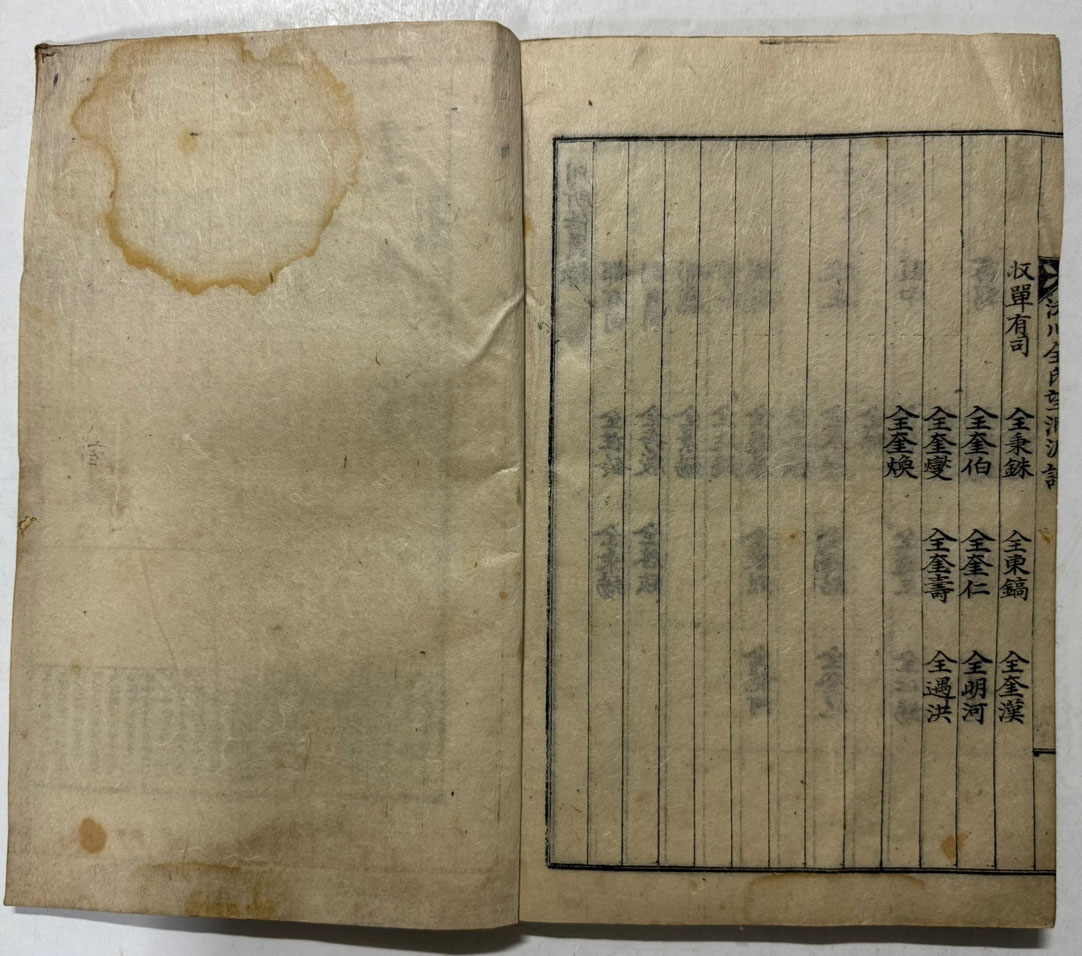 沃川全氏望洞派譜
収單有司 全秉銖 全東鎬 全奎漢
全奎伯 全奎仁 全明河
全奎燮 全奎壽 全遇洪
全奎煥